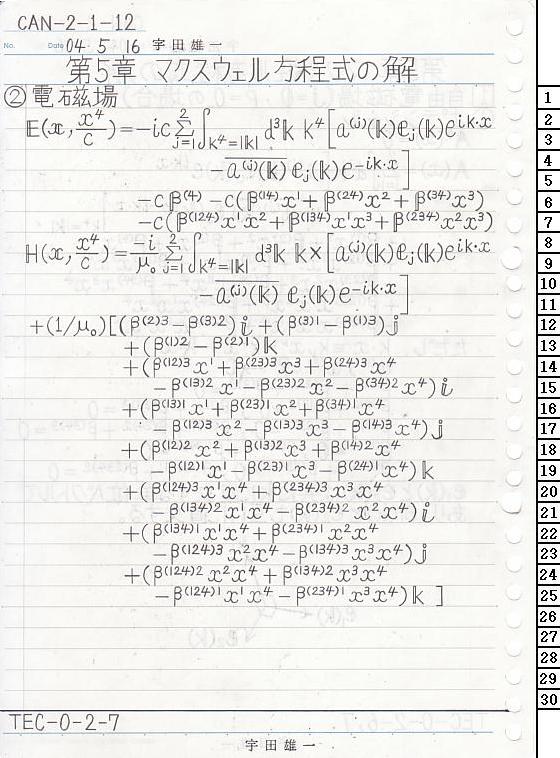 CAN-2-1-12
No. Date 04 5 16 宇田雄一
第5章 マクスウェル方程式の解
② 電磁場
𝔼(x, x⁴/c) = -ic Σ_{j=1}^{2} ∫_{k⁴=|𝕜|} d³𝕜 k⁴ [ a⁽ʲ⁾(𝕜) 𝕖ⱼ(𝕜) e^{ik·x}
- \overline{a⁽ʲ⁾(𝕜)} 𝕖ⱼ(𝕜) e^{-ik·x} ]
-cβ^{(4)} -c(β^{(14)}x¹ + β^{(24)}x² + β^{(34)}x³)
-c(β^{(124)}x¹x² + β^{(134)}x¹x³ + β^{(234)}x²x³)
ℍ(x, x⁴/c) = -i/μ₀ Σ_{j=1}^{2} ∫_{k⁴=|𝕜|} d³𝕜 𝕜× [ a⁽ʲ⁾(𝕜) 𝕖ⱼ(𝕜) e^{ik·x}
- \overline{a⁽ʲ⁾(𝕜)} 𝕖ⱼ(𝕜) e^{-ik·x} ]
+(1/μ₀)[(β^{(2)3} - β^{(3)2})𝕚 + (β^{(3)1} - β^{(1)3})𝕛
+(β^{(1)2} - β^{(2)1})𝕜
+(β^{(12)3}x¹ + β^{(23)3}x³ + β^{(24)3}x⁴
-β^{(13)2}x¹ - β^{(23)2}x² - β^{(34)2}x⁴)𝕚
+(β^{(13)1}x¹ + β^{(23)1}x² + β^{(34)1}x⁴
-β^{(12)3}x² - β^{(13)3}x³ - β^{(14)3}x⁴)𝕛
+(β^{(12)2}x² + β^{(13)2}x³ + β^{(14)2}x⁴
-β^{(12)1}x¹ - β^{(23)1}x³ - β^{(24)1}x⁴)𝕜
+(β^{(124)3}x¹x⁴ + β^{(234)3}x³x⁴
-β^{(134)2}x¹x⁴ - β^{(234)2}x²x⁴)𝕚
+(β^{(134)1}x¹x⁴ + β^{(234)1}x²x⁴
-β^{(124)3}x²x⁴ - β^{(134)3}x³x⁴)𝕛
+(β^{(124)2}x²x⁴ + β^{(134)2}x³x⁴
-β^{(124)1}x¹x⁴ - β^{(234)1}x³x⁴)𝕜 ]
TEC-0-2-7
宇田雄一
1
2
3
4
5
6
7
8
9
10
11
12
13
14
15
16
17
18
19
20
21
22
23
24
25
26
27
28
29
30